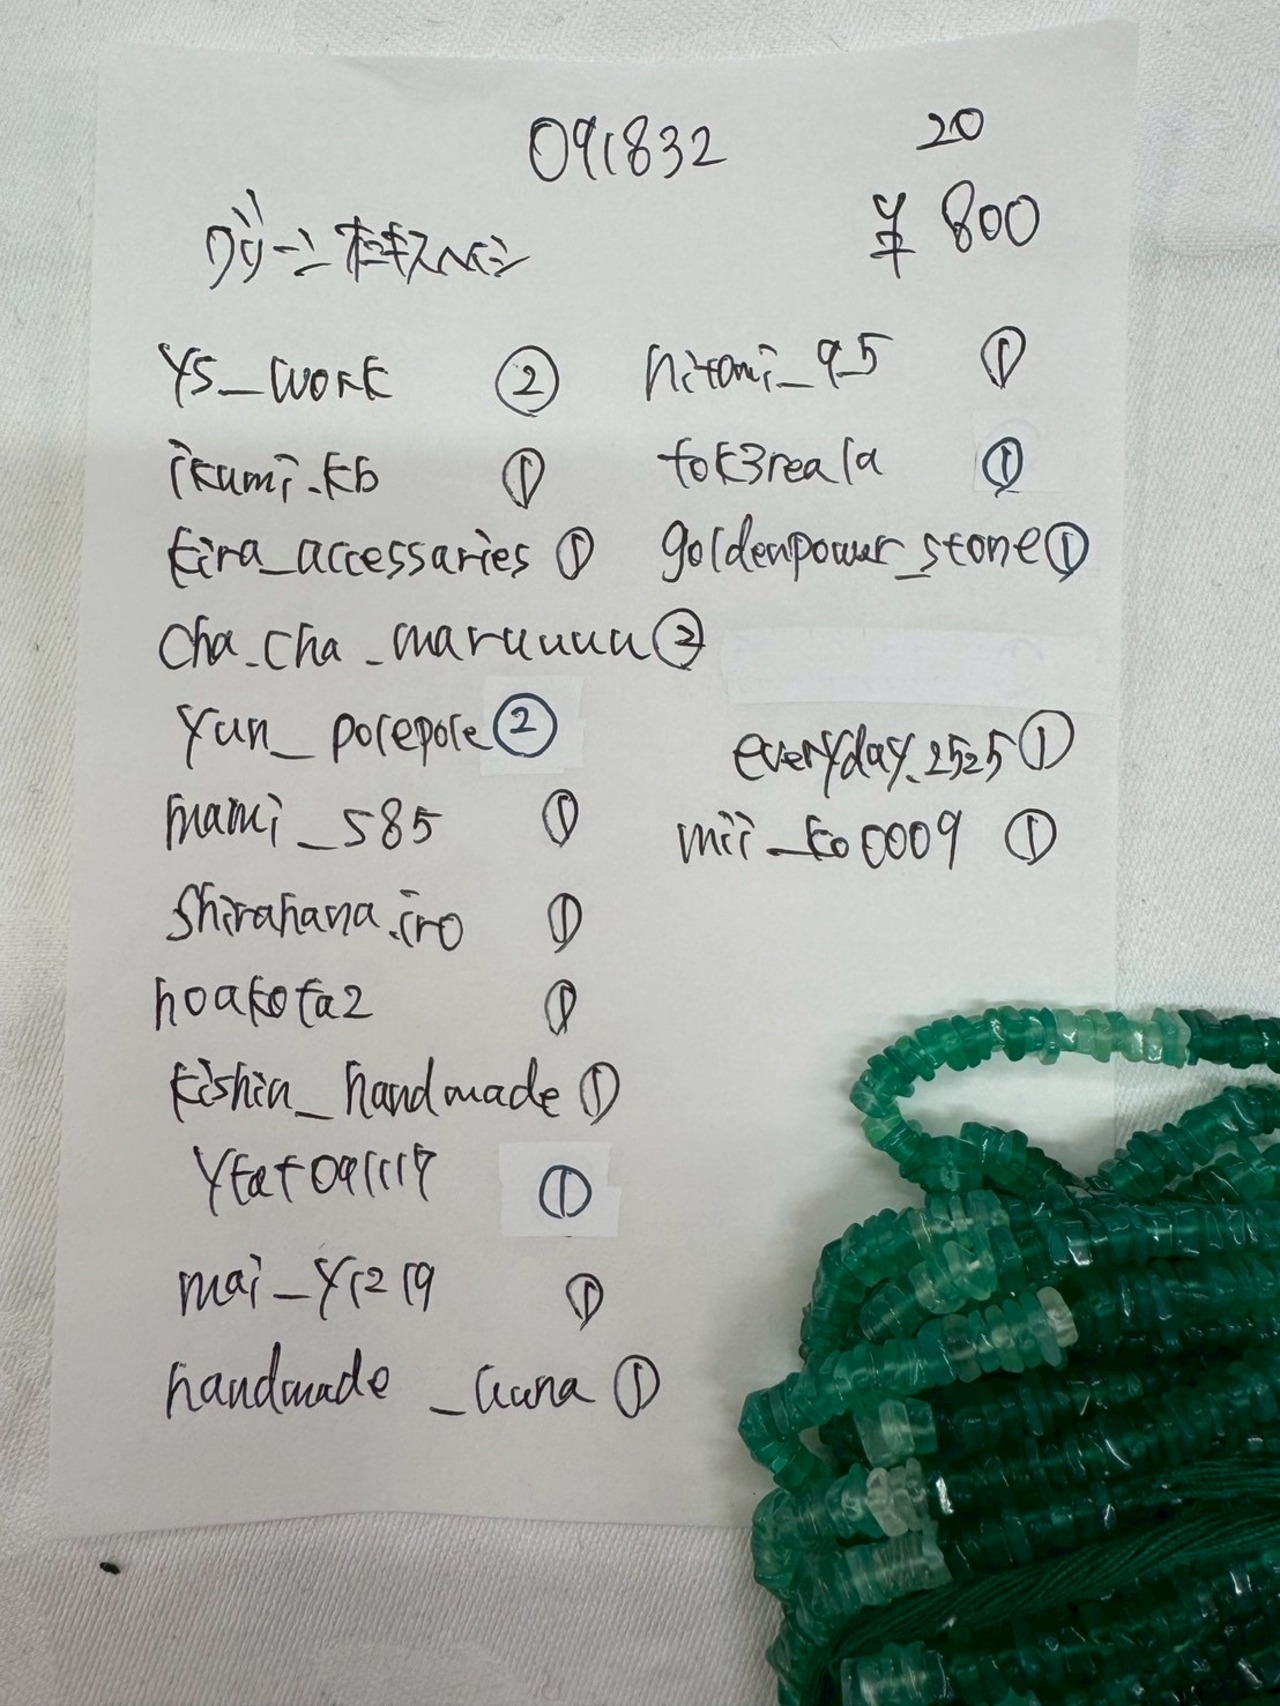 091832
20
¥ 800
グリーンオニキスヘイシ
ys_work ②
ikumi.kb ①
kira_accessaries ①
cha_cha_maruuuu ②
yun_polepole ②
mami_s85 ①
shirahana.iro ①
hoakota2 ①
kishin_handmade ①
①
mai_y1219 ①
handmade _uuna ①
hitomi_95 ①
tok3reala ①
goldenpower_stone ①
everyday.2525 ①
mii_ko0009 ①